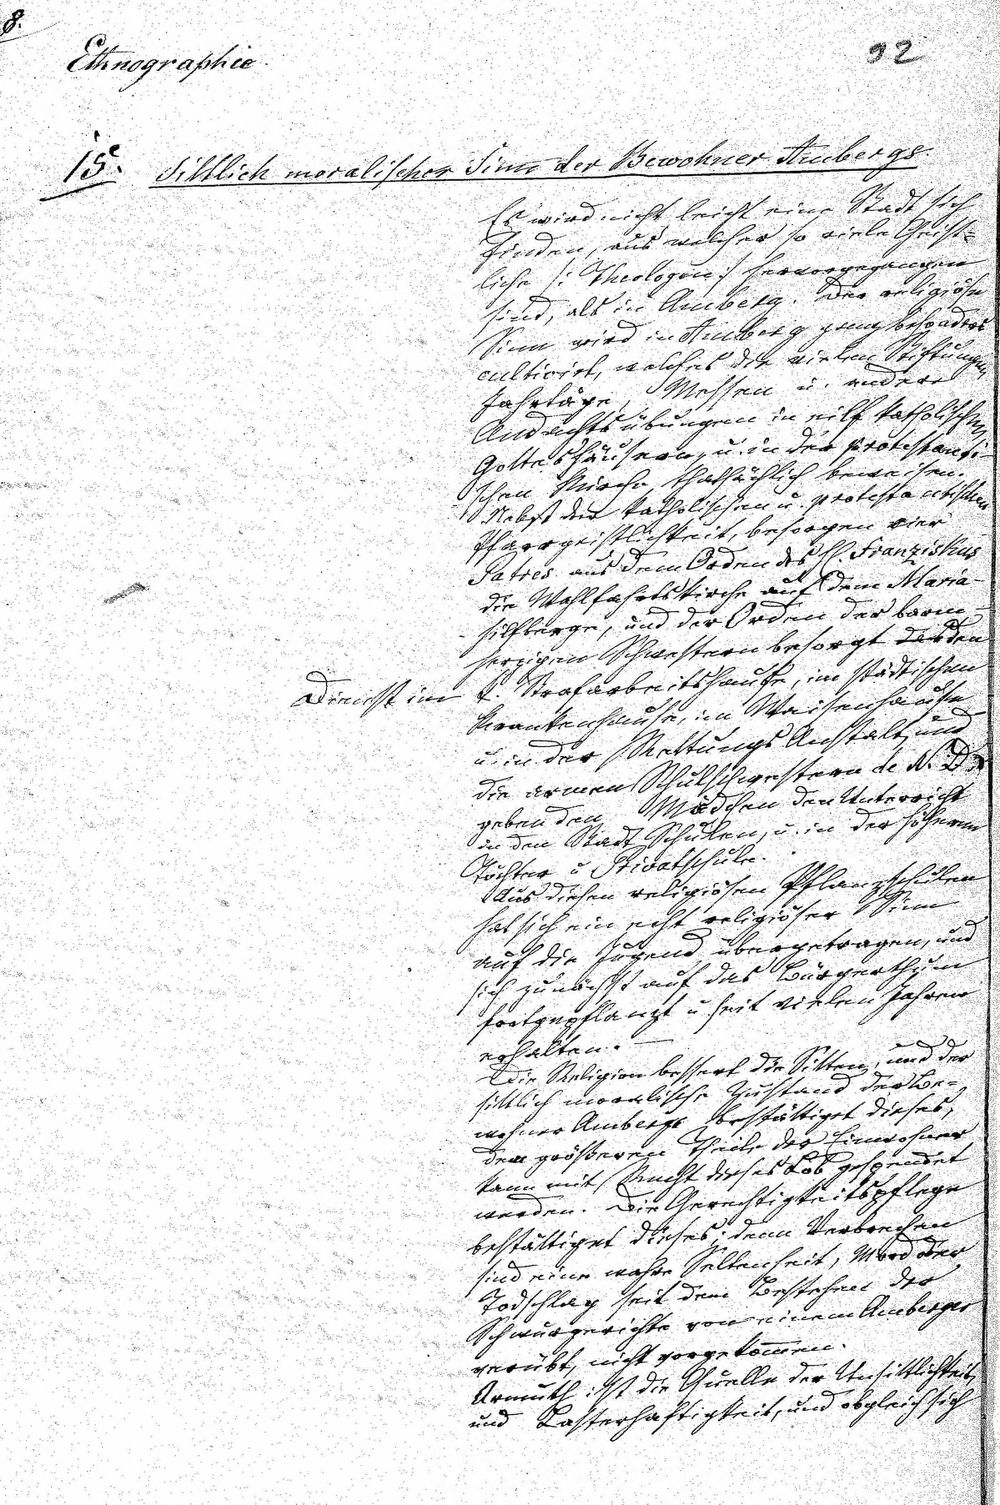 8.
Ethnographie.
92
15. Sittlich moralischer Sinn der Bewohner Ambergs.
Es wird nicht leicht eine Stadt sich
finden, aus welcher so viele Geist=
liche /: Theologen :/ hervorgegangen
sind, als in Amberg. Der religiöse
Sinn wird in Amberg ganz besonders
cultivirt, welches die vielen Stiftungen,
Jahrtäge, Messen u. andere
Andachtsübungen in eilf katholischen
Gotteshäusern, u. in der protestanti-
schen Kirche thatsächlich beweisen.
Nebst der katholischen u. protestantischen
Pfarrgeistlichkeit, besorgen vier
Patres aus dem Orden des hl. Franziskus
die Wallfahrtskirche auf dem Maria-
hilfberge, und der Orden der barm-
herzigen Schwestern besorgt den
Dienst im k. Strafarbeitshause, im städtischen
Krankenhause, im Waisenhause
u. in der Rettungs Anstalt, und
die armen Schulschwestern de N. D.
geben den Mädchen den Unterricht
in den Stadt Schulen, u. in der höheren
Töchter u Privatschule.
Aus diesen religiösen Pflanzschulen
hat sich ein echt religiöser Sinn
auf die Jugend übergetragen, und
sich zunächst auf das Bürgerthum
fortgepflanzt u. seit vielen Jahren
erhalten. —
Die Religion bessert die Sitten, und der
sittlich moralische Zustand der Be=
wohner Ambergs bestättiget dieses,
dem größeren Theile der Einwohner
kann mit Recht dieses Lob gespendet
werden. Die Gerechtigkeitspflege
bestättiget dieses; denn Verbrechen
sind eine wahre Seltenheit, Mord oder
Todschlag seit dem Bestehen der
Schwurgerichte von einem Amberger
verübt, nicht vorgekommen.
Armuth ist die Quelle der Unsittlichkeit,
und Lasterhaftigkeit, und obgleich sich